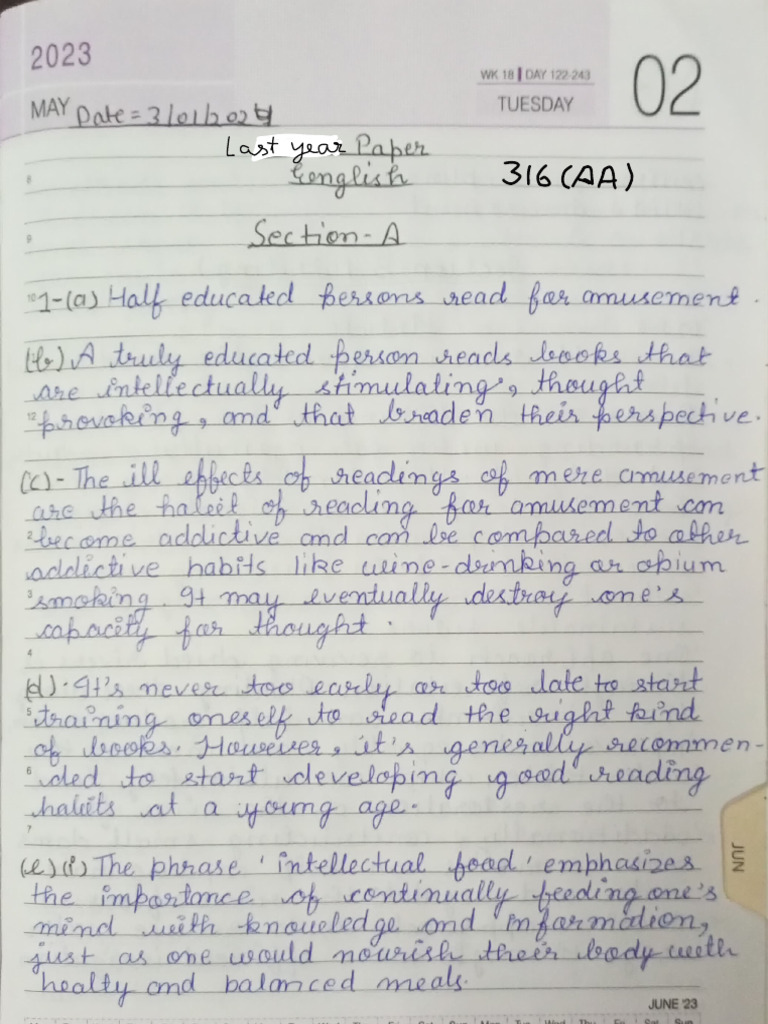 2023
WK 18 | DAY 122-243
02
MAY
TUESDAY
Date = 3/01/2024
Last year Paper
English
316 (AA)
8
9
Section-A
10
1-(a) Half educated persons read for amusement.
(b) A truly educated person reads books that
are intellectually stimulating, thought
12
provoking, and that broaden their perspective.
(c)- The ill effects of readings of mere amusement
are the habit of reading for amusement can
2
become addictive and can be compared to other
addictive habits like wine-drinking or opium
3
smoking. It may eventually destroy one's
capacity for thought.
4
(d). It's never too early or too late to start
5
training oneself to read the right kind
of books. However, it's generally recommen-
6
ded to start developing good reading
habits at a young age.
7
(e)(i) The phrase 'intellectual food' emphasizes
the importance of continually feeding one's
mind with knowledge and information,
just as one would nourish their body with
healty and balanced meals.
JUN
JUNE '23